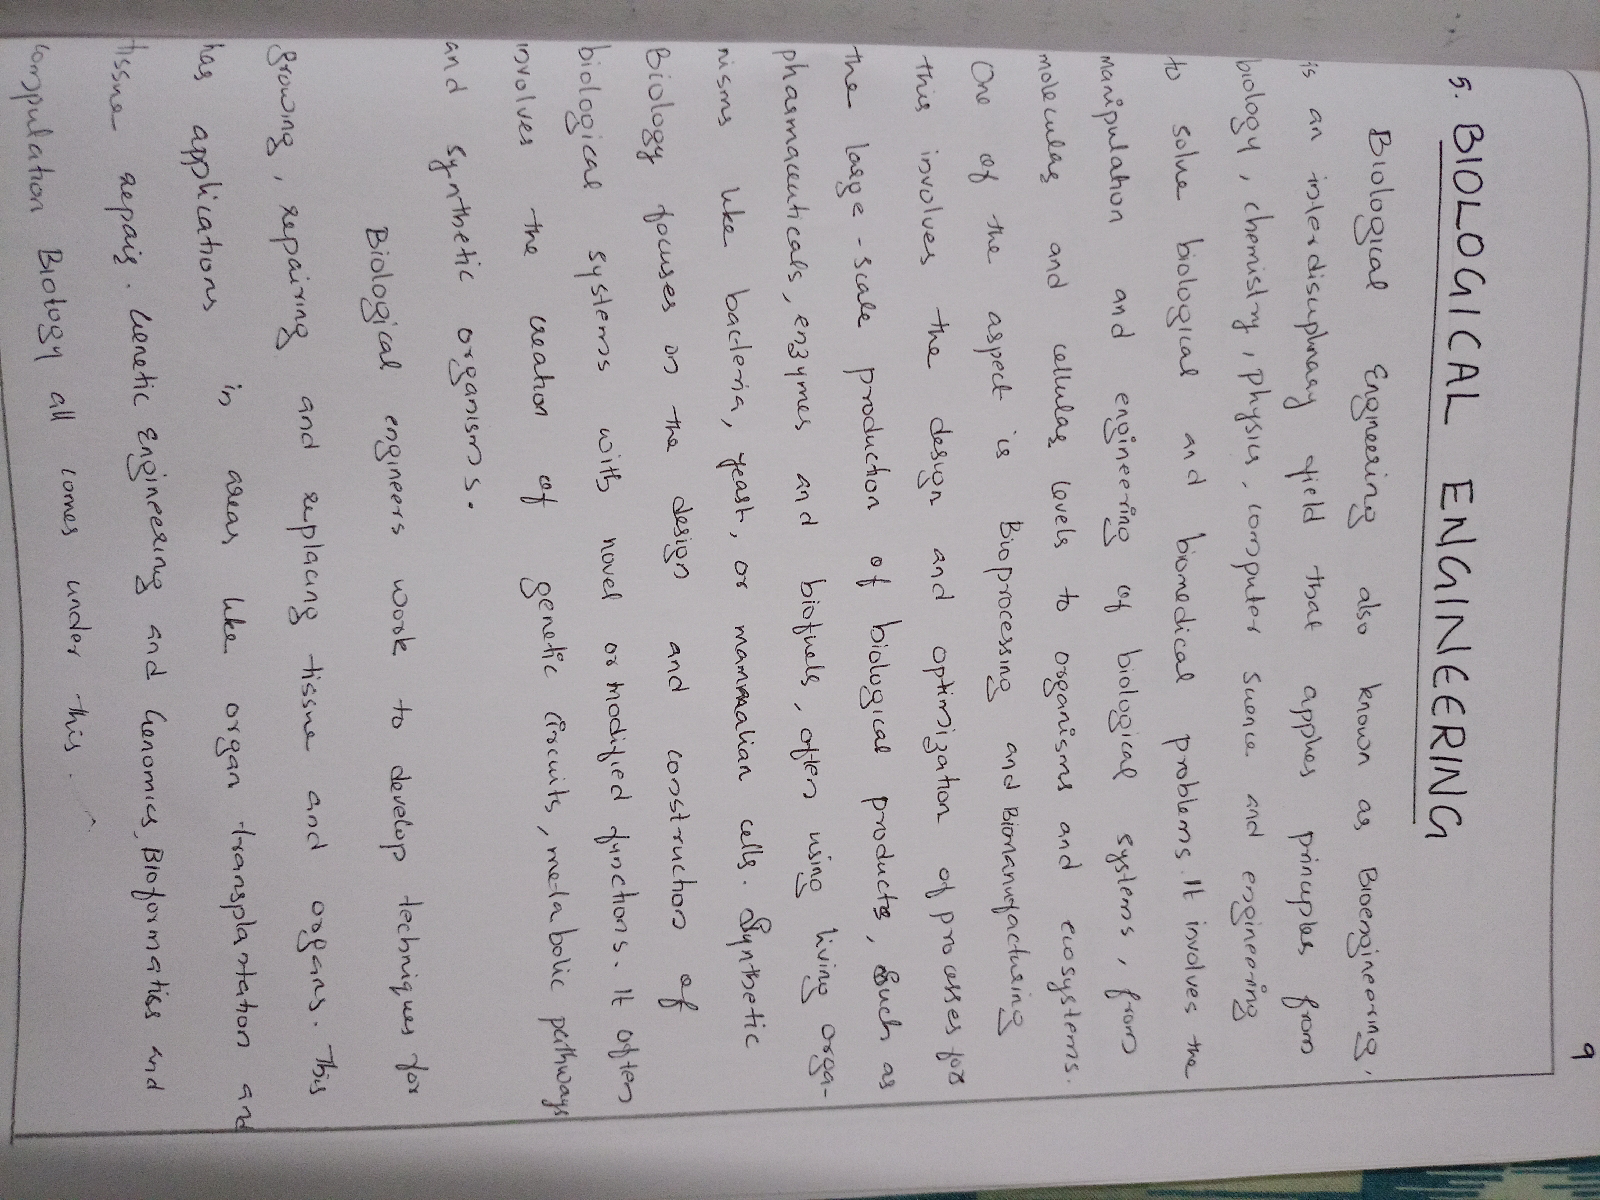 9
5. BIOLOGICAL ENGINEERING
Biological Engineering also known as Bioengineering,
is an interdisciplinary field that applies principles from
biology, chemistry, physics, computer science and engineering
to solve biological and biomedical problems. It involves the
manipulation and engineering of biological systems, from
molecular and cellular levels to organisms and ecosystems.
One of the aspect is Bioprocessing and Biomanufacturing
this involves the design and optimization of processes for
the large-scale production of biological products, such as
pharmaceuticals, enzymes and biofuels, often using living orga-
nisms like bacteria, yeast, or mammalian cells. Synthetic
Biology focuses on the design and construction of
biological systems with novel or modified functions. It often
involves the creation of genetic circuits, metabolic pathways
and synthetic organisms.
Biological engineers work to develop techniques for
growing, repairing and replacing tissue and organs. This
has applications in areas like organ transplantation and
tissue repair. Genetic Engineering and Genomics, Bioformatics and
compulation Biology all comes under this.